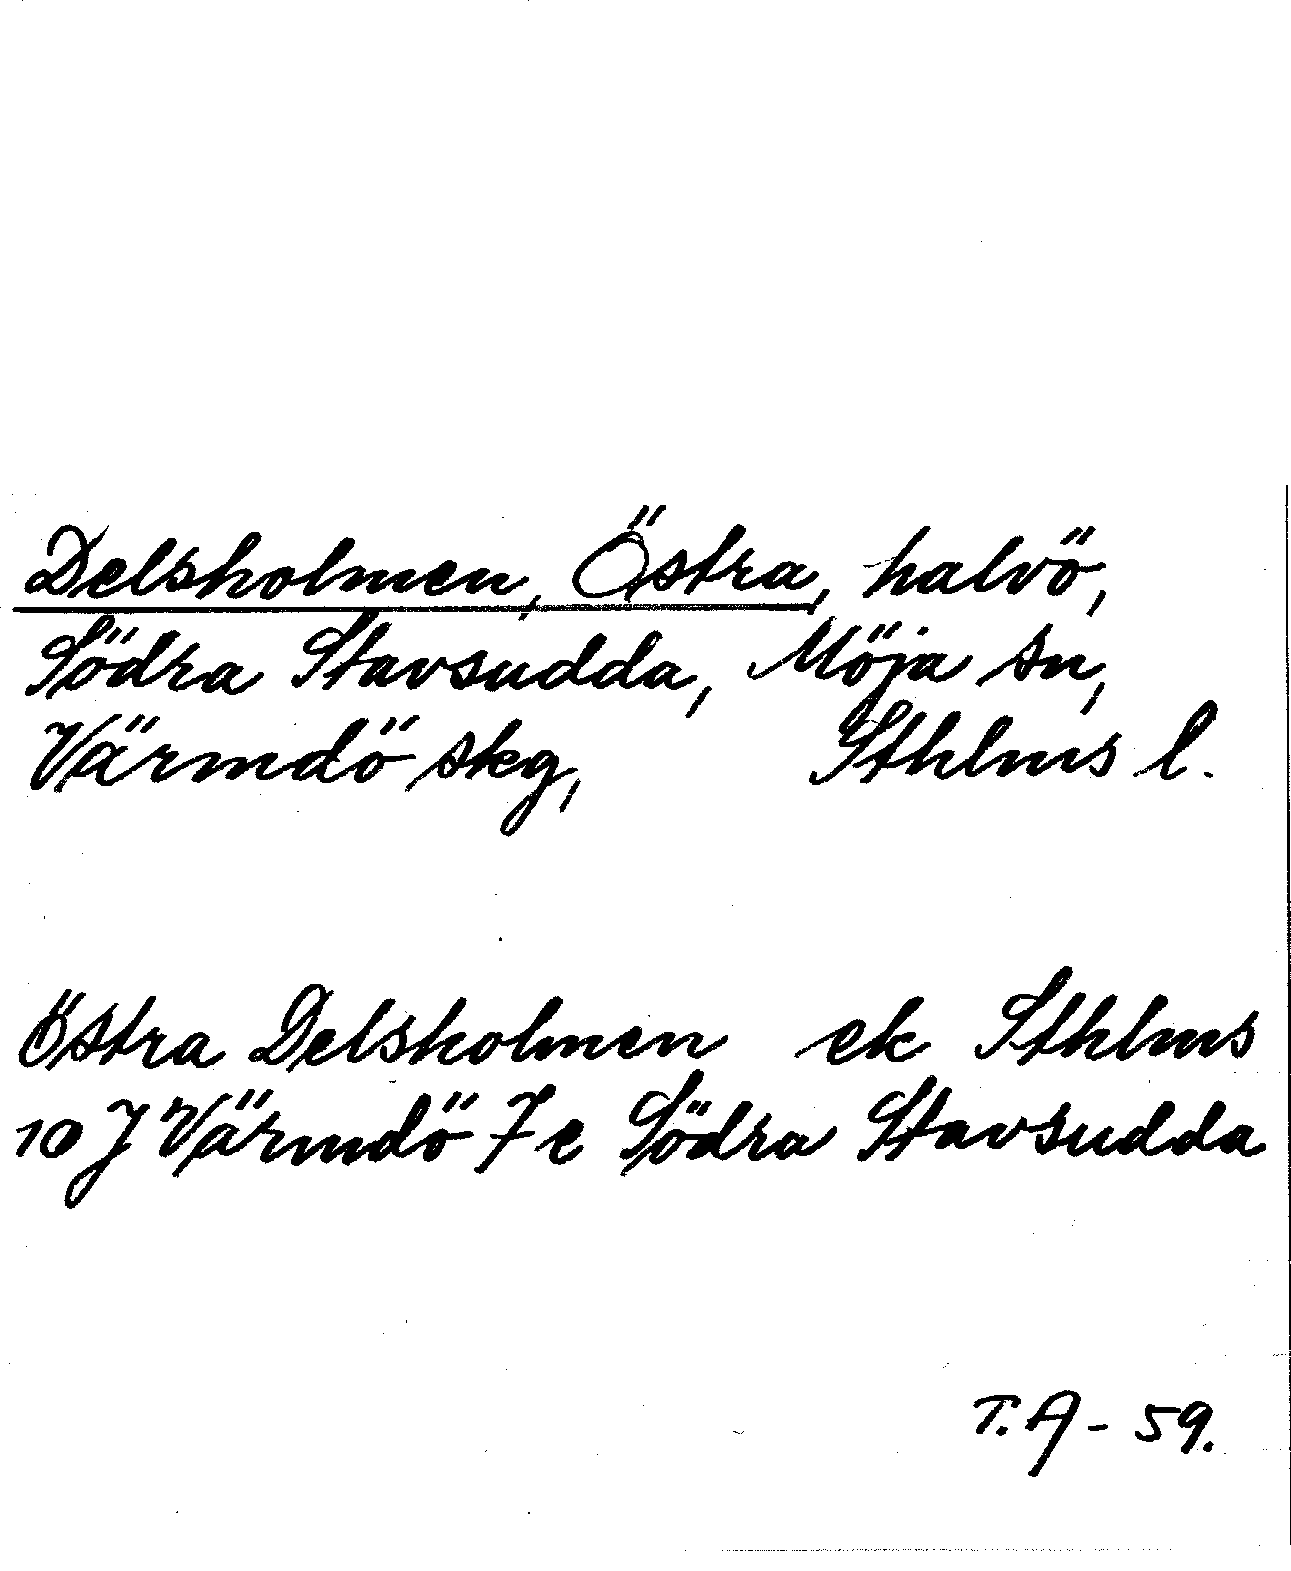 Delsholmen, Östra, halvö,
Södra Stavsudda, Möja sn,
Värmdö skg, Sthlms l.
Östra Delsholmen ek Sthlms
10 J Värmdö 7 e Södra Stavsudda
T.A - 59.